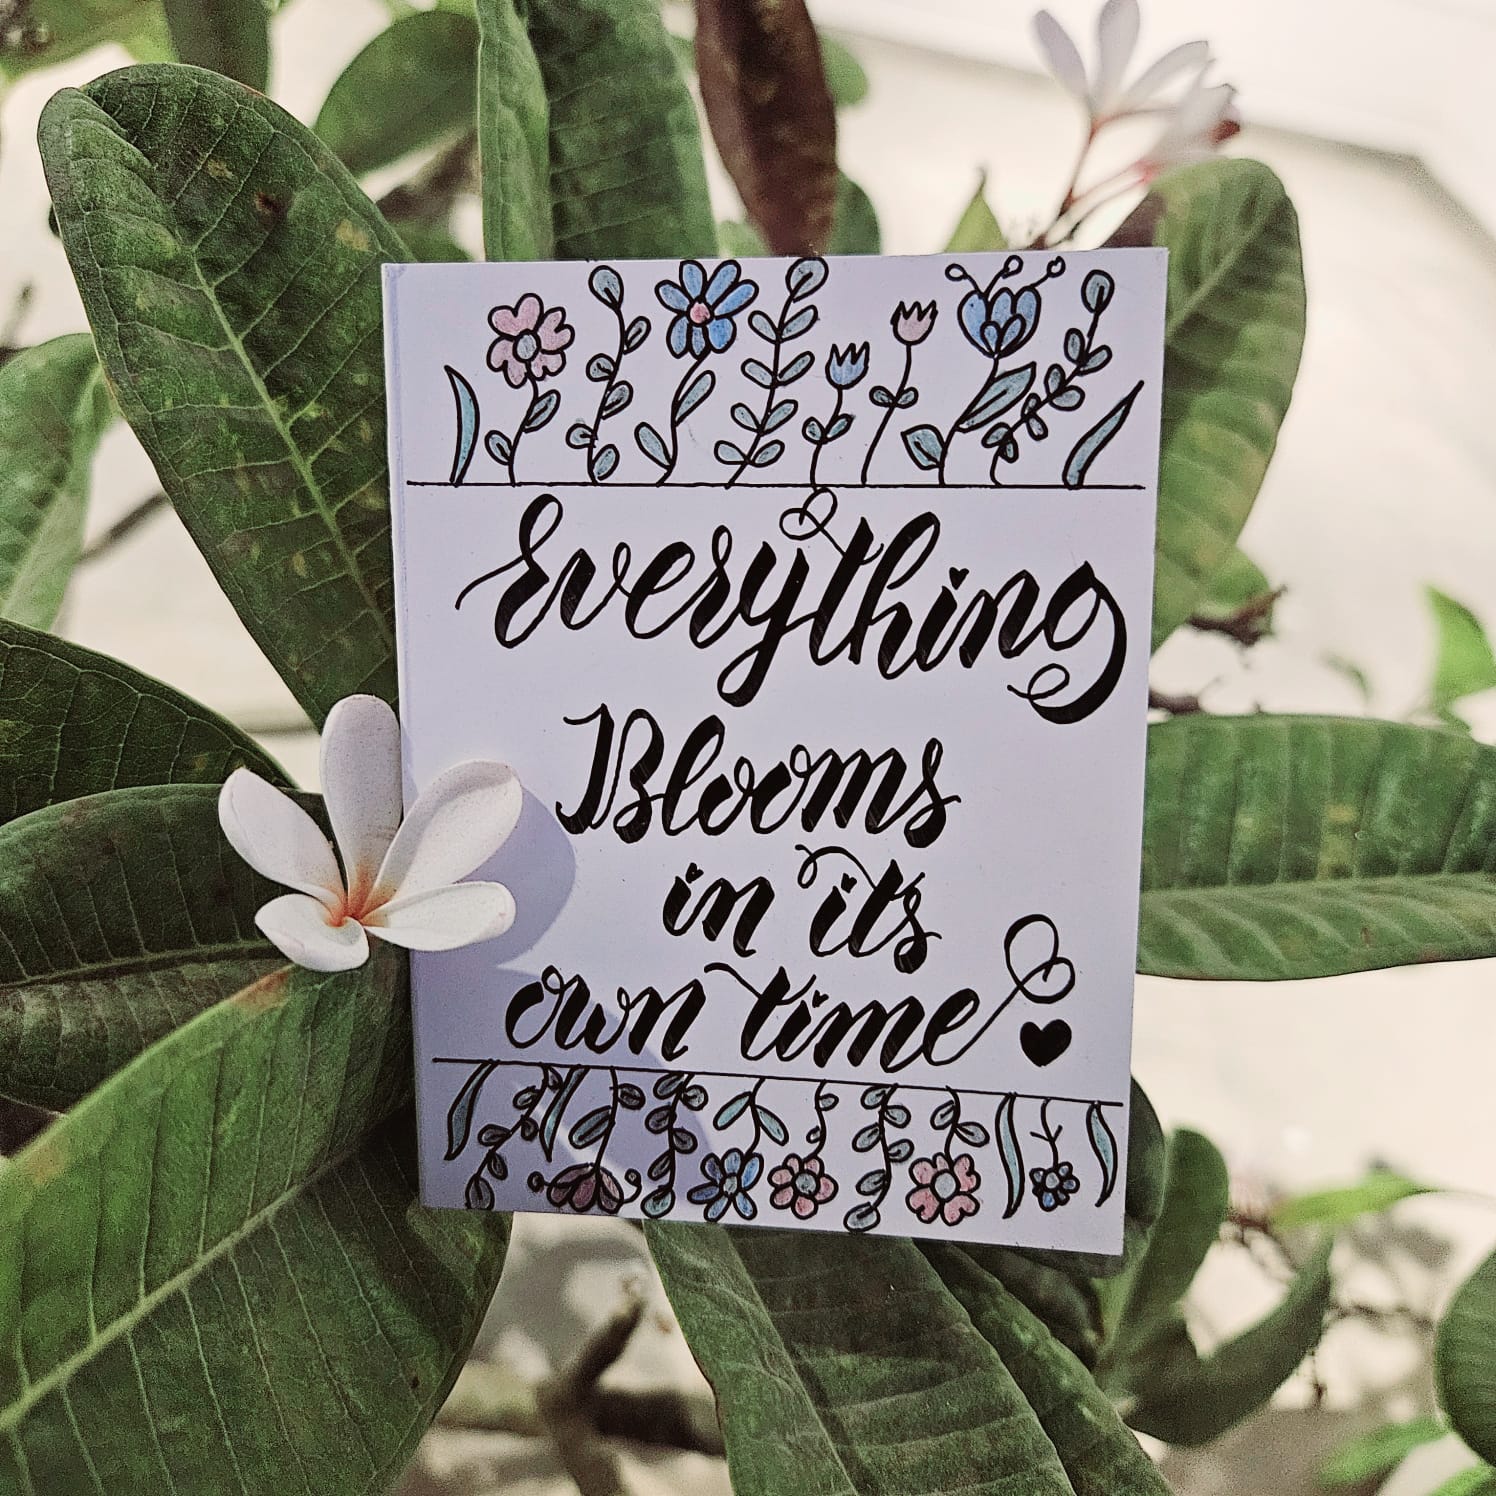 Everything
Blooms
in its
own time